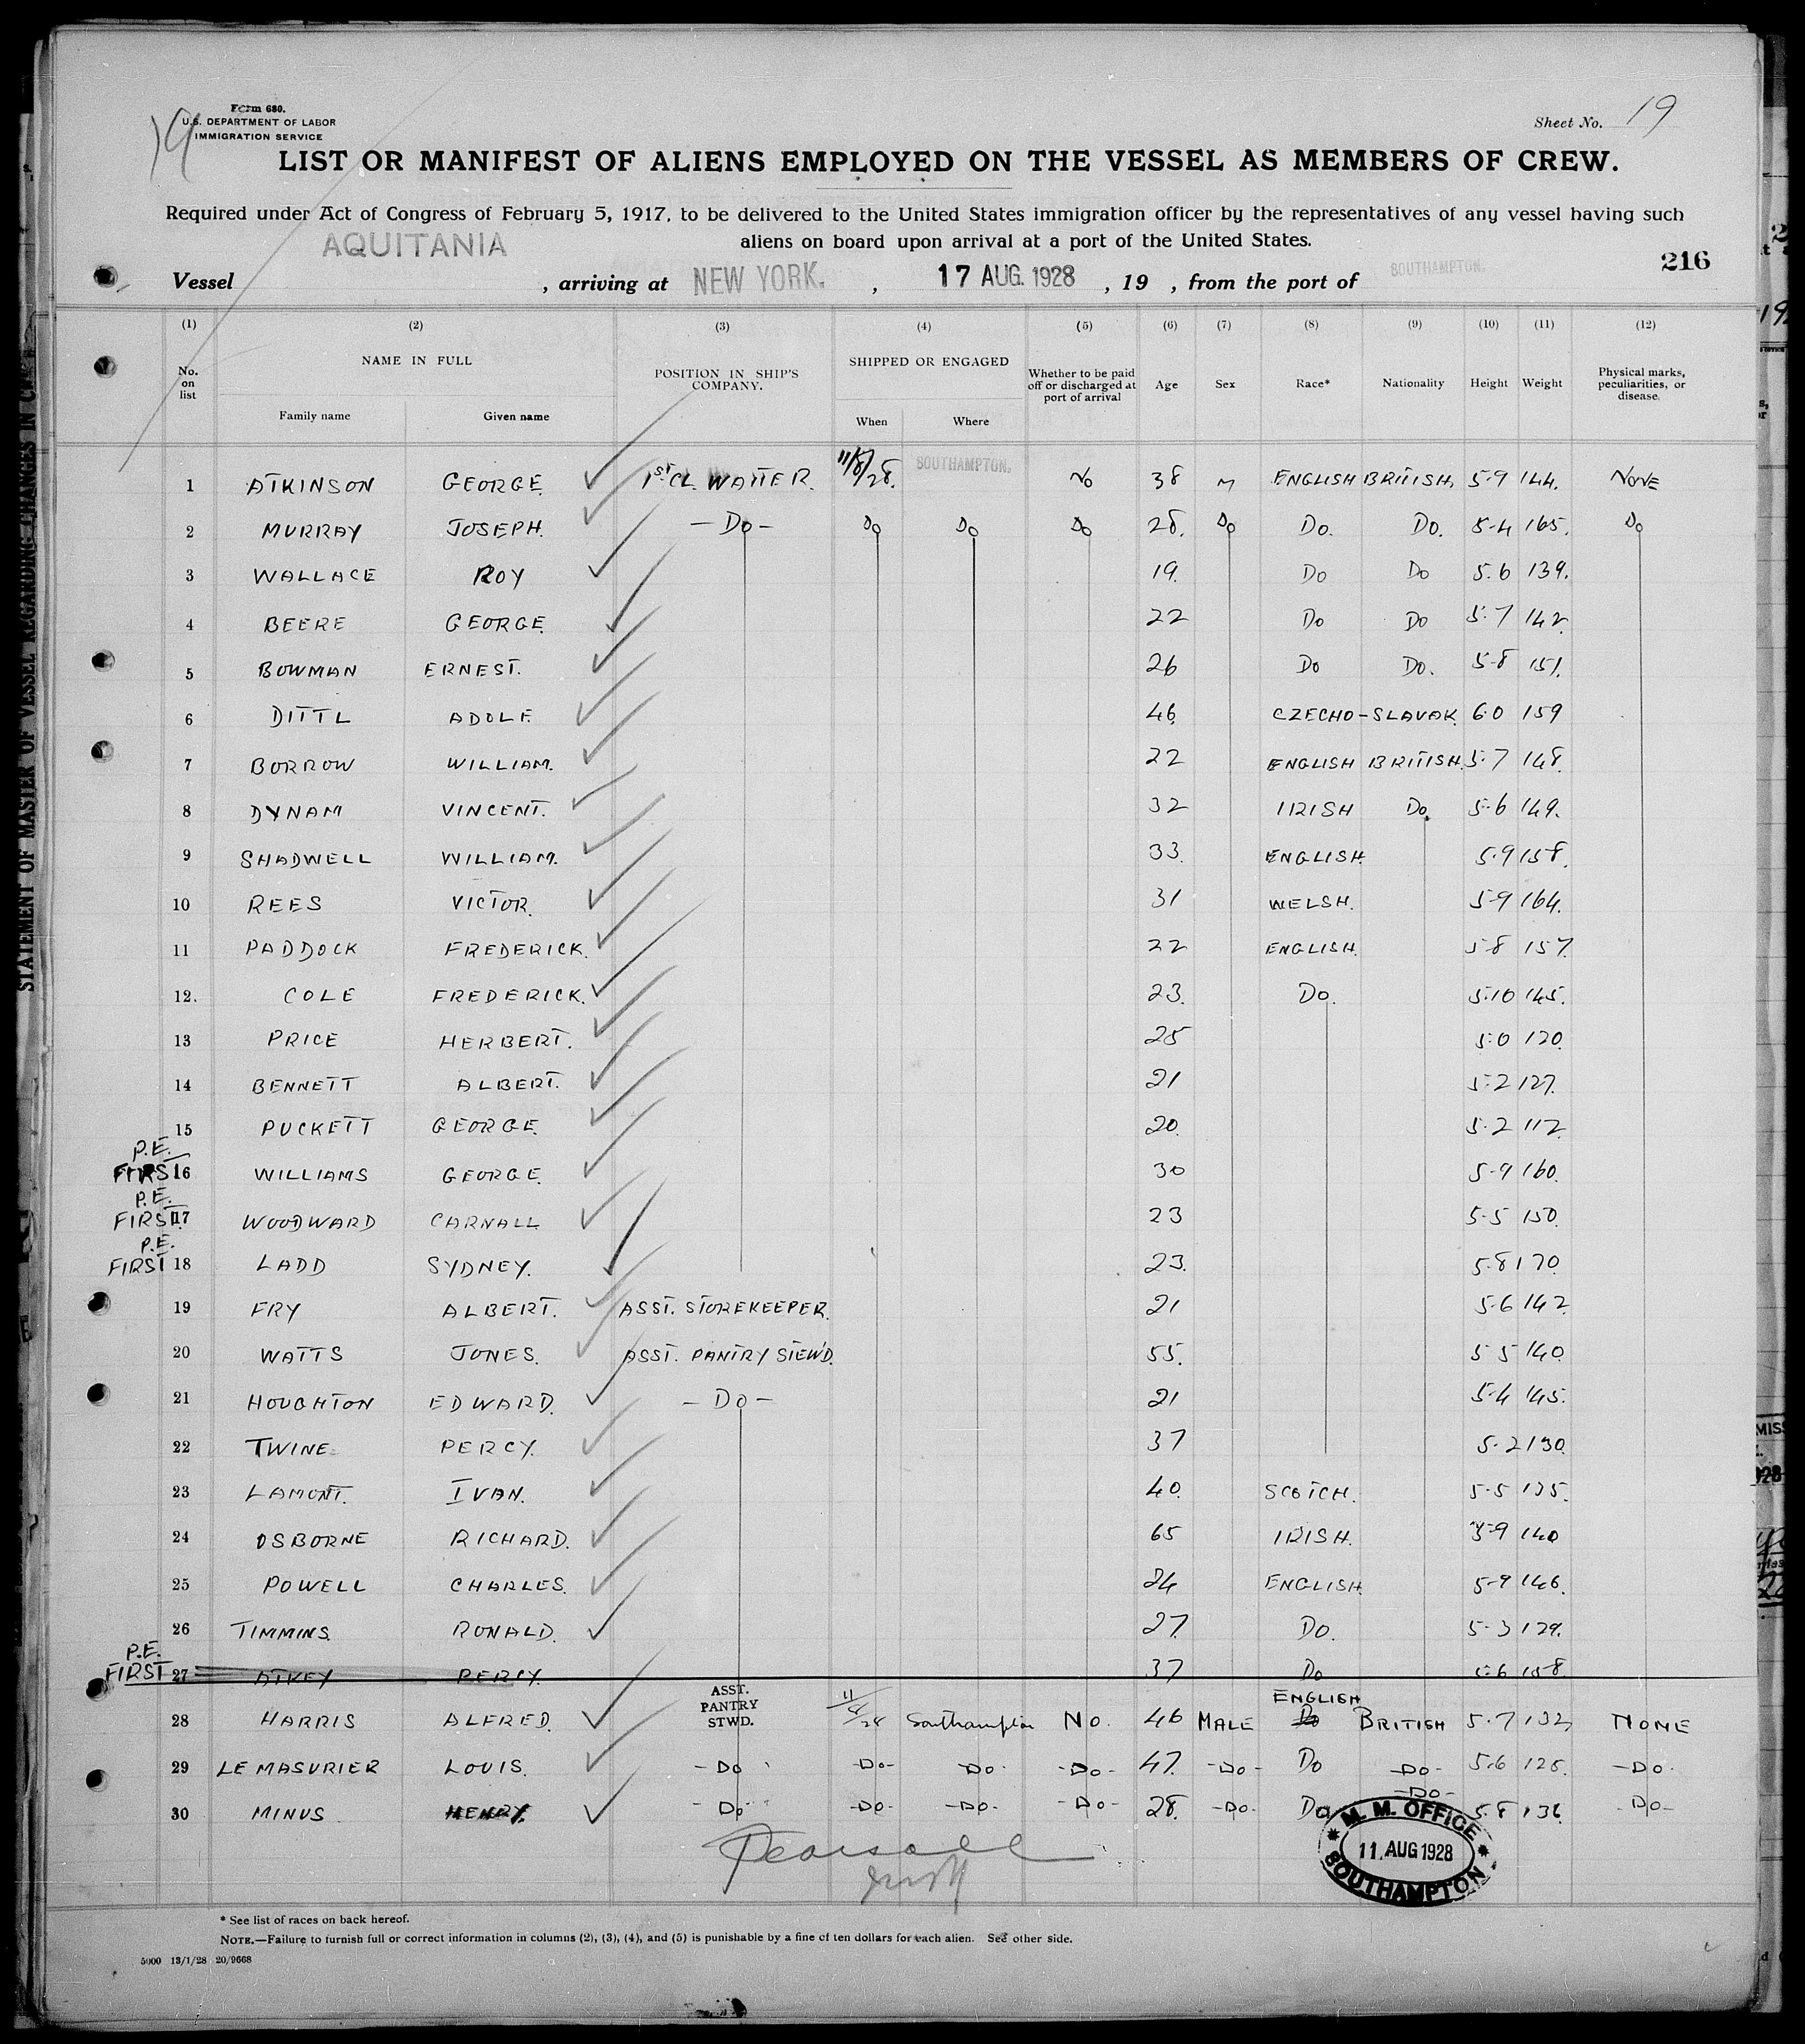 19
Form 680.
U.S. DEPARTMENT OF LABOR
IMMIGRATION SERVICE
Sheet No. 19
LIST OR MANIFEST OF ALIENS EMPLOYED ON THE VESSEL AS MEMBERS OF CREW.
Required under Act of Congress of February 5, 1917, to be delivered to the United States immigration officer by the representatives of any vessel having such
aliens on board upon arrival at a port of the United States.
216
Vessel AQUITANIA , arriving at NEW YORK. , 17 AUG. 1928 , 19 , from the port of SOUTHAMPTON.
(1) (2) (3) (4) (5) (6) (7) (8) (9) (10) (11) (12)
No. on list NAME IN FULL Family name Given name POSITION IN SHIP'S COMPANY. SHIPPED OR ENGAGED When Where Whether to be paid off or discharged at port of arrival Age Sex Race* Nationality Height Weight Physical marks, peculiarities, or disease.
1 ATKINSON GEORGE. 1st CL. WAITER. 11/8/28. SOUTHAMPTON. No 38 M ENGLISH BRITISH. 5-9 144. NONE
2 MURRAY JOSEPH. - Do - Do Do Do 28. Do Do. Do. 5-4 165. Do
3 WALLACE ROY 19. Do Do 5.6 139.
4 BEERE GEORGE. 22 Do Do 5.7 142.
5 BOWMAN ERNEST. 26 Do Do. 5-8 151.
6 DITTL ADOLF. 46. CZECHO-SLAVAK. 6.0 159
7 BORROW WILLIAM. 22 ENGLISH BRITISH. 5.7 148.
8 DYNAM VINCENT. 32 IRISH Do. 5-6 149.
9 SHADWELL WILLIAM. 33. ENGLISH. 5.9 158.
10 REES VICTOR. 31 WELSH. 5-9 164.
11 PADDOCK FREDERICK. 22 ENGLISH. 5-8 157.
12. COLE FREDERICK. 23. Do. 5.10 145.
13 PRICE HERBERT. 25 5.0 120.
14 BENNETT ALBERT. 21 5-2 127.
15 PUCKETT GEORGE. 20. 5-2 112.
P.E.
FIRST 16 WILLIAMS GEORGE. 30 5-9 160.
P.E.
FIRST. 17 WOODWARD CARNALL 23 5-5 150.
P.E.
FIRST 18 LADD SYDNEY. 23. 5.8 170.
19 FRY ALBERT. ASST. STOREKEEPER. 21 5.6 142.
20 WATTS JONES. ASST. PANTRY STEW'D. 55. 5 5 140.
21 HOUGHTON EDWARD. - Do - 21 5-4 145.
22 TWINE PERCY. 37 5.2 130.
23 LAMONT. IVAN. 40. SCOTCH. 5-5 135.
24 OSBORNE RICHARD. 65 IRISH. 5-9 140
25 POWELL CHARLES. 24 ENGLISH. 5-9 146.
26 TIMMINS. RONALD. 27. Do. 5-3 129.
P.E.
FIRST 27 ATKEY PERCY. 37 Do 5-6 158.
28 HARRIS ALFRED. ASST. PANTRY STWD. 11/8/28 Southampton No. 46 MALE ENGLISH Do BRITISH 5.7 132 NONE
29 LE MASURIER LOUIS. - Do -Do- -Do- -Do- 47. -Do- Do -Do- 5.6 128. -Do-
30 MINUS HENRY. - Do -Do- -Do- -Do- 28. -Do- Do -Do- 5.8 136. -Do-
Pearsall
M. M. OFFICE
11. AUG 1928
SOUTHAMPTON
* See list of races on back hereof.
NOTE.—Failure to furnish full or correct information in columns (2), (3), (4), and (5) is punishable by a fine of ten dollars for each alien. See other side.
5000 13/1/28 20/9668
STATEMENT OF MASTER OF VESSEL REGARDING CHANGES IN